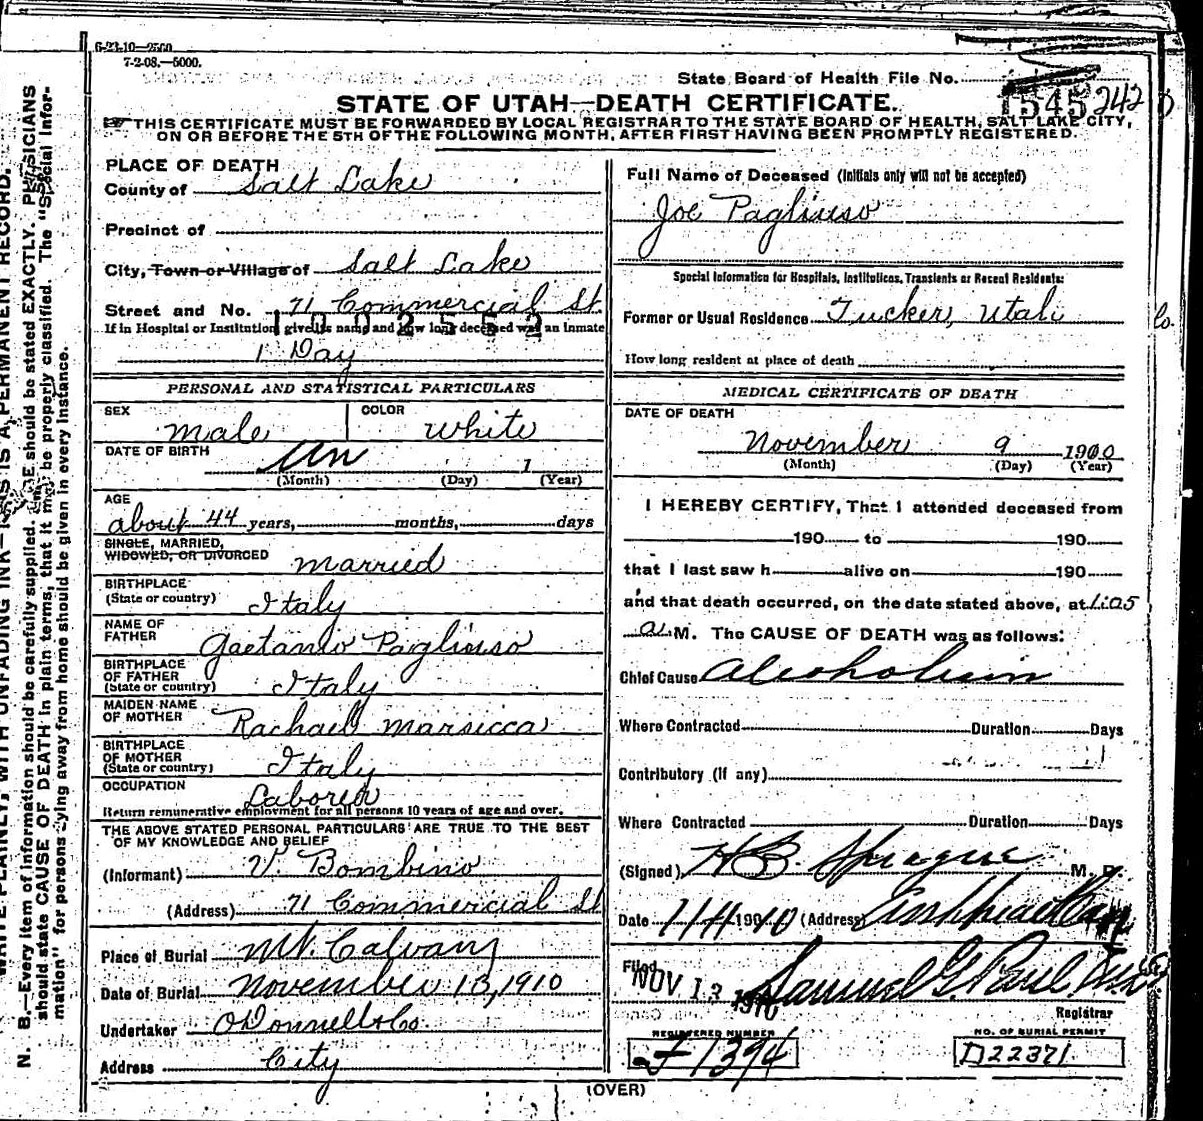 6-23-10—2500
7-2-08.—5000.
State Board of Health File No.
1545 242
STATE OF UTAH—DEATH CERTIFICATE.
THIS CERTIFICATE MUST BE FORWARDED BY LOCAL REGISTRAR TO THE STATE BOARD OF HEALTH, SALT LAKE CITY,
ON OR BEFORE THE 5TH OF THE FOLLOWING MONTH, AFTER FIRST HAVING BEEN PROMPTLY REGISTERED.
PLACE OF DEATH
County of Salt Lake
Precinct of
City, Town or Village of Salt Lake
Street and No. 71 Commercial St.
If in Hospital or Institution, give its name and how long deceased was an inmate
1 Day
PERSONAL AND STATISTICAL PARTICULARS
SEX male COLOR white
DATE OF BIRTH Un 1
(Month) (Day) (Year)
AGE
about 44 years, months, days
SINGLE, MARRIED,
WIDOWED, OR DIVORCED married
BIRTHPLACE
(State or country) Italy
NAME OF
FATHER Gaetano Pagliuso
BIRTHPLACE
OF FATHER
(State or country) Italy
MAIDEN NAME
OF MOTHER Rachael Marsicca
BIRTHPLACE
OF MOTHER
(State or country) Italy
OCCUPATION Laborer
Return remunerative employment for all persons 10 years of age and over.
THE ABOVE STATED PERSONAL PARTICULARS ARE TRUE TO THE BEST
OF MY KNOWLEDGE AND BELIEF
(Informant) V. Bombino
(Address) 71 Commercial St
Place of Burial Mt. Calvary
Date of Burial November 13, 1910
Undertaker O'Donnell & Co.
Address City
Full Name of Deceased (Initials only will not be accepted)
Joe Pagliuso
Special Information for Hospitals, Institutions, Transients or Recent Residents:
Former or Usual Residence Tucker, Utah Co.
How long resident at place of death
MEDICAL CERTIFICATE OF DEATH
DATE OF DEATH
November 9 1910
(Month) (Day) (Year)
I HEREBY CERTIFY, That I attended deceased from
190 to 190
that I last saw h alive on 190
and that death occurred, on the date stated above, at 1:05
a. M. The CAUSE OF DEATH was as follows:
Chief Cause Alcoholism
Where Contracted Duration Days
Contributory (If any)
Where Contracted Duration Days
(Signed) H B Sprague M. D.
Date 11/11 1910 (Address)
Filed NOV 13 1910 Samuel G. Paul
Registrar
REGISTERED NUMBER
J 1394
NO. OF BURIAL PERMIT
D22371
(OVER)
WRITE PLAINLY, WITH UNFADING INK—THIS IS A PERMANENT RECORD.
N. B.—Every item of information should be carefully supplied. AGE should be stated EXACTLY. PHYSICIANS
should state CAUSE OF DEATH in plain terms, that it may be properly classified. The "Special Infor-
mation" for persons dying away from home should be given in every instance.